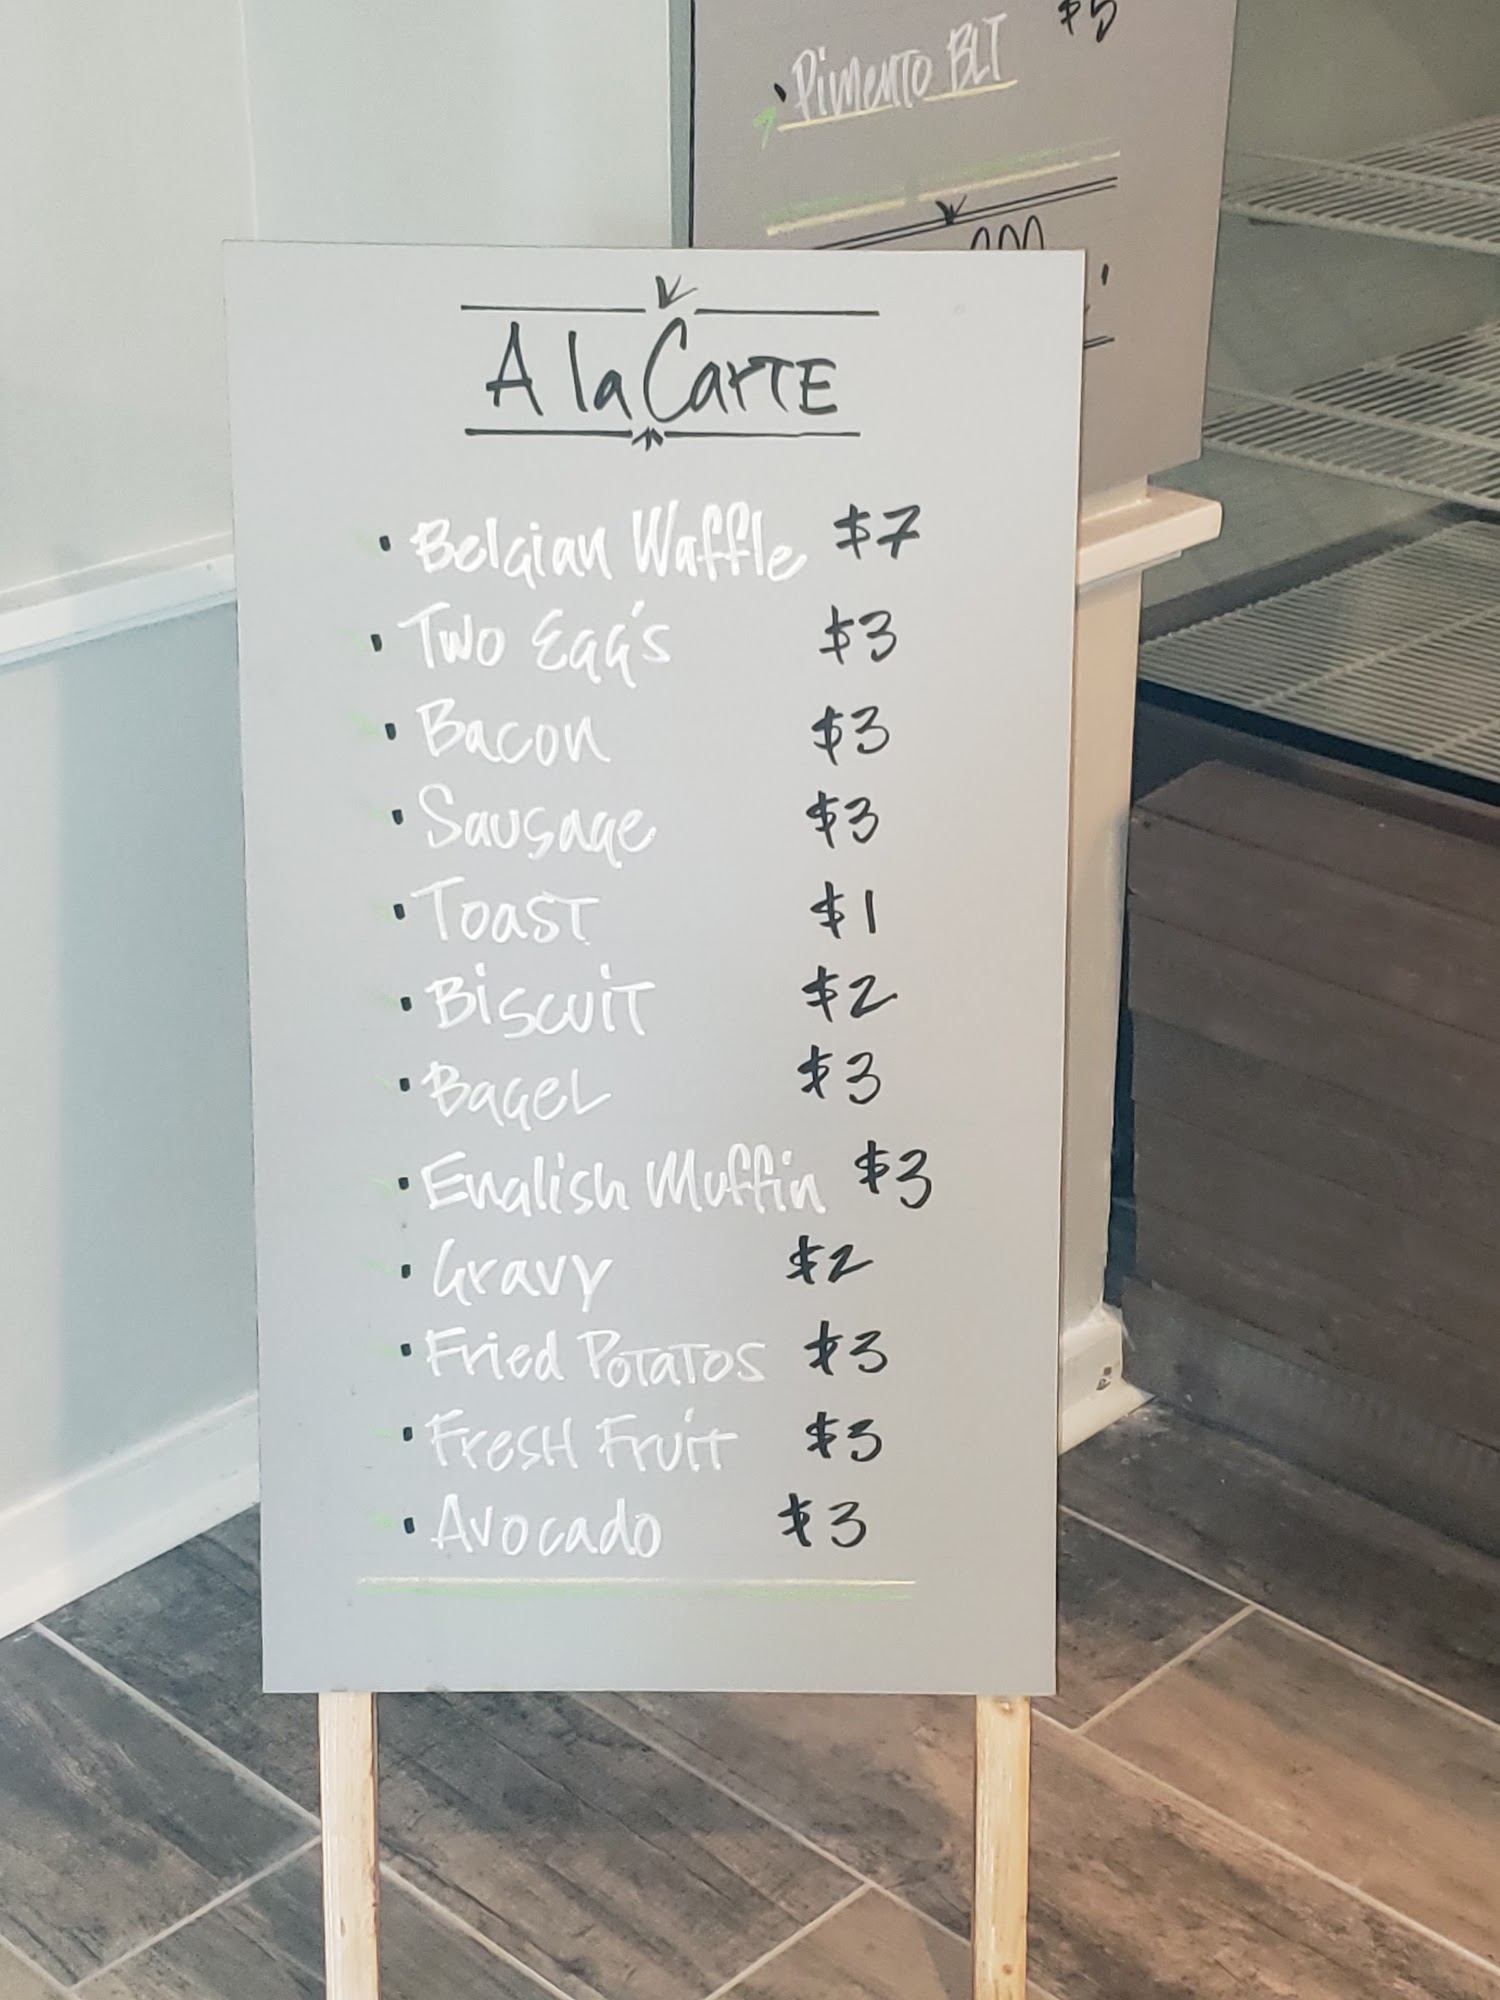 $5
Pimento BLT
A la Carte
Belgian Waffle $7
Two Egg's $3
Bacon $3
Sausage $3
Toast $1
Biscuit $2
Bagel $3
English Muffin $3
Gravy $2
Fried Potatos $3
Fresh Fruit $3
Avocado $3